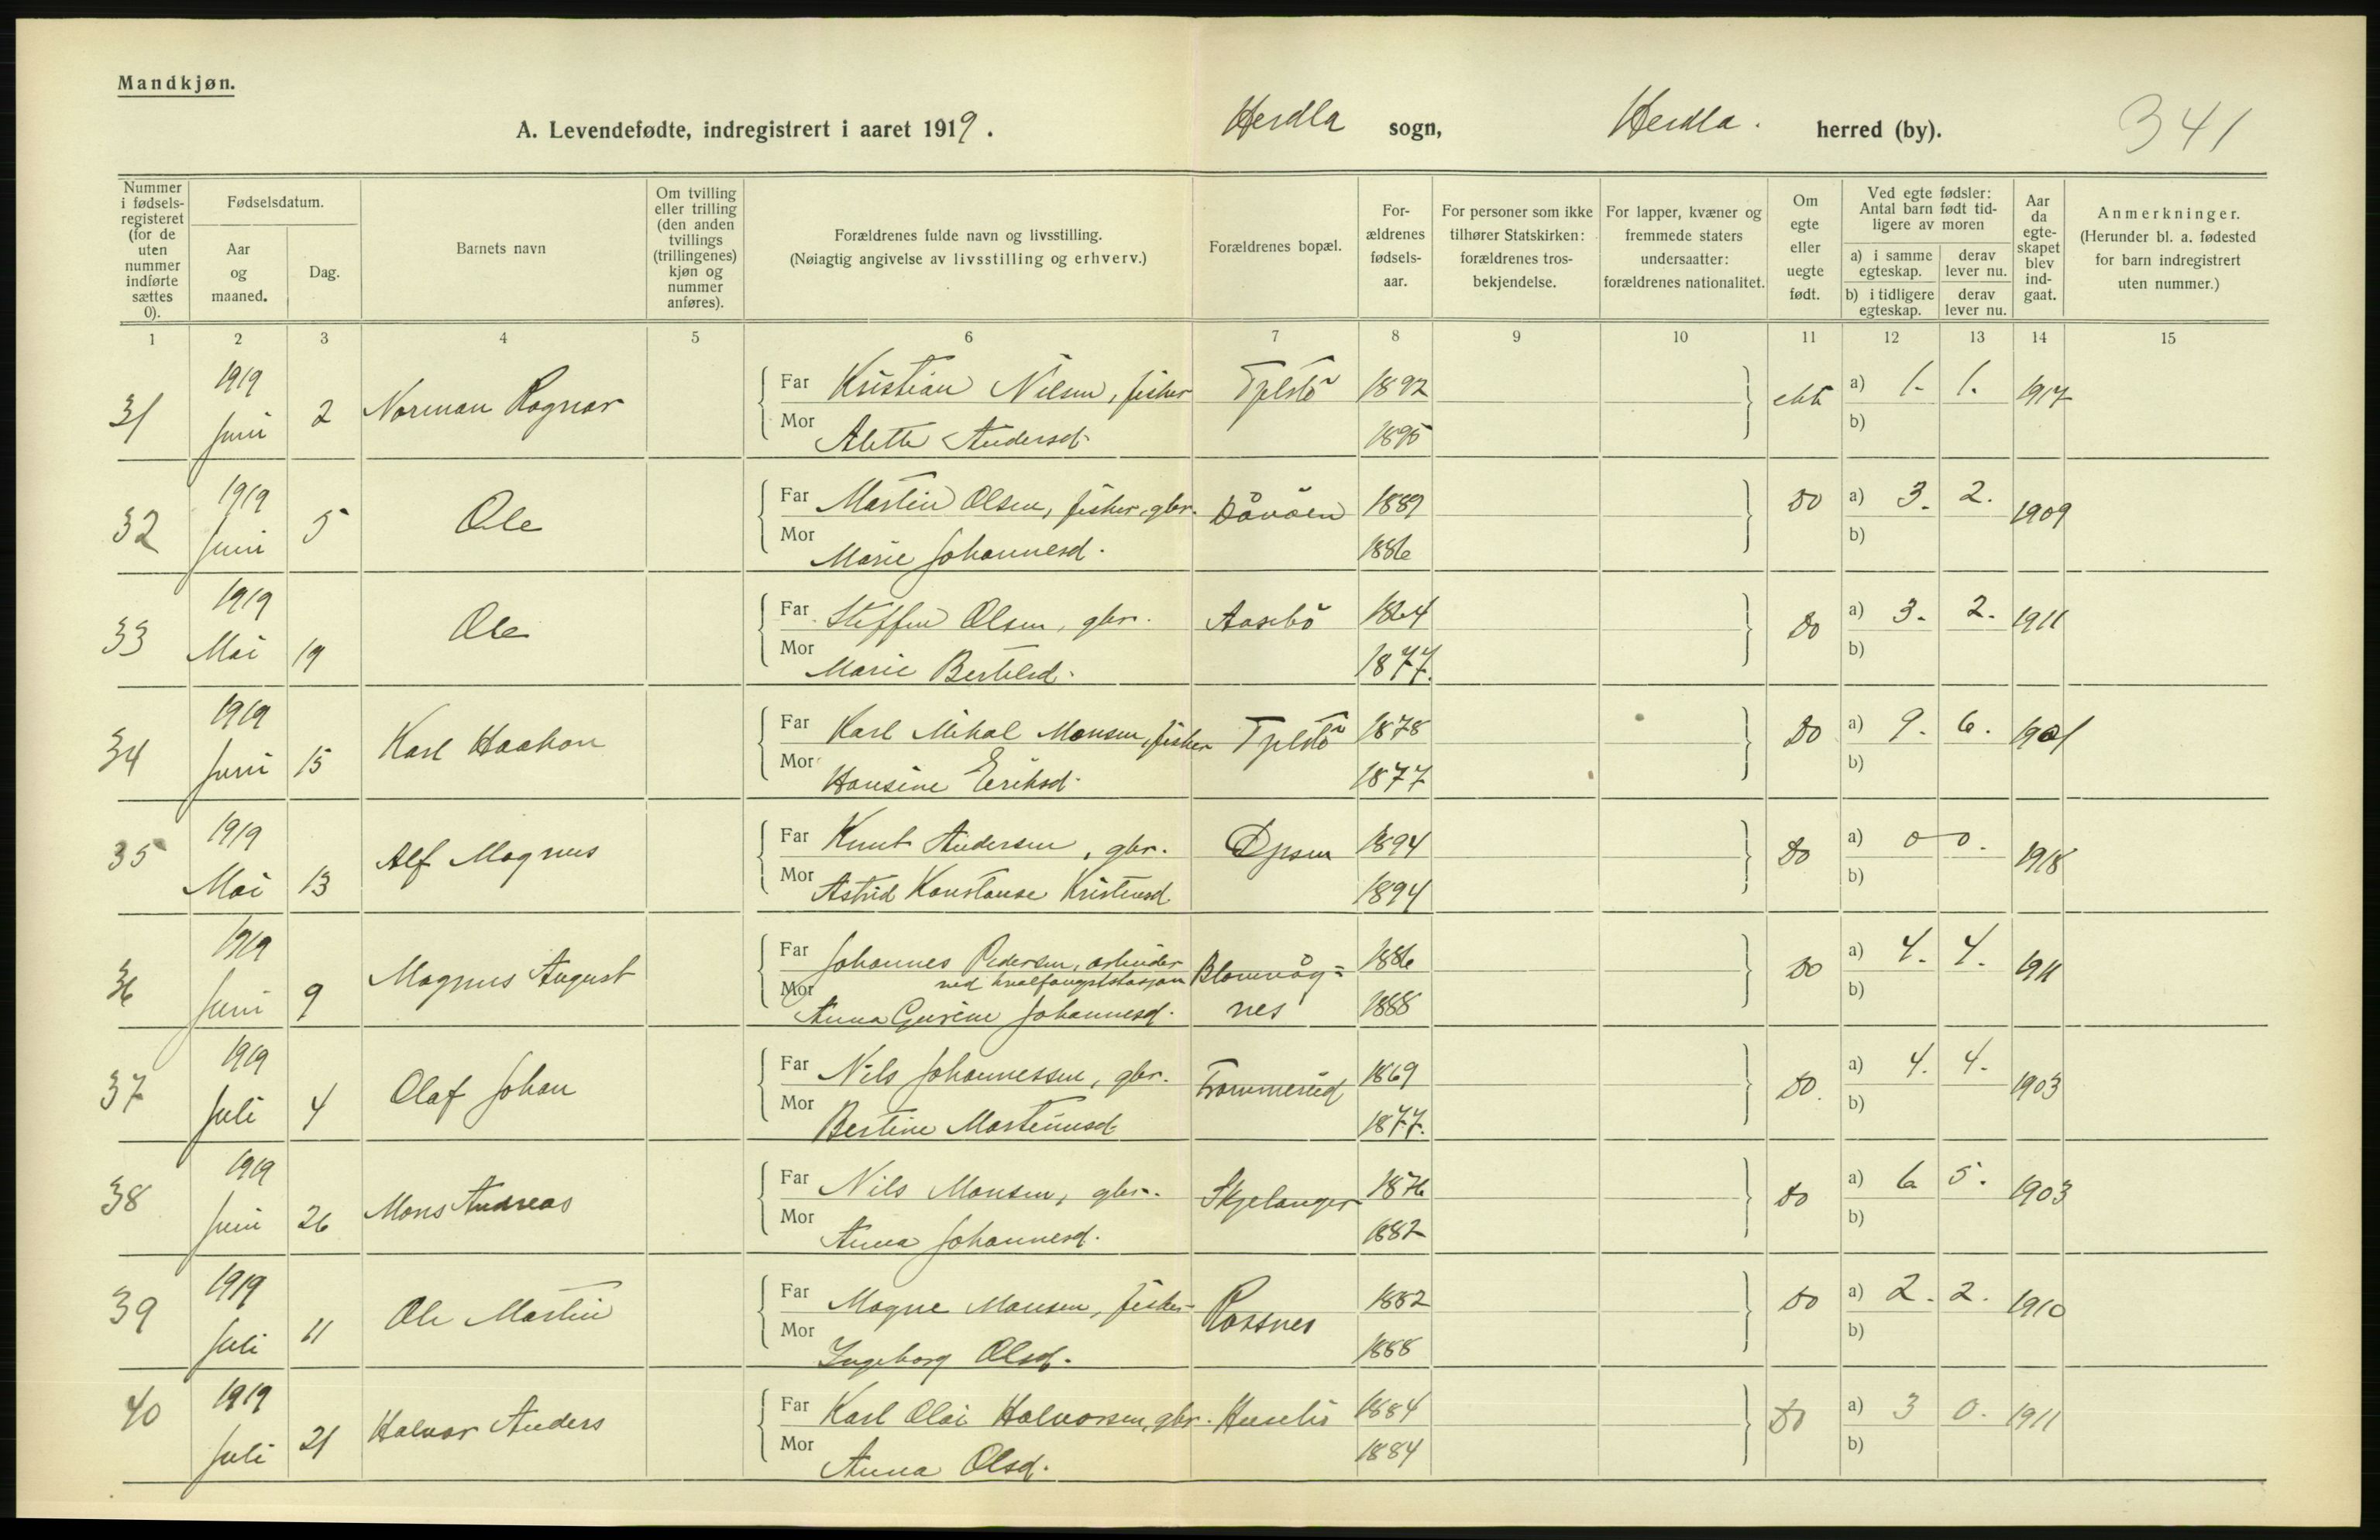 Mandkjøn.
A. Levendefødte, indregistrert i aaret 1919. Herdla sogn, Herdla. herred (by). 341
Nummer i fødselsregisteret (for de uten nummer indførte sættes 0). Fødselsdatum. Aar og maaned. Dag. Barnets navn Om tvilling eller trilling (den anden tvillings (trillingenes) kjøn og nummer anføres). Forældrenes fulde navn og livsstilling. (Nøiagtig angivelse av livsstilling og erhverv.) Forældrenes bopæl. Forældrenes fødselsaar. For personer som ikke tilhører Statskirken: forældrenes trosbekjendelse. For lapper, kvæner og fremmede staters undersaatter: forældrenes nationalitet. Om egte eller uegte født. Ved egte fødsler: Antal barn født tidligere av moren a) i samme egteskap. derav lever nu. b) i tidligere egteskap. derav lever nu. Aar da egteskapet blev indgaat. Anmerkninger. (Herunder bl. a. fødested for barn indregistrert uten nummer.)
1 2 3 4 5 6 7 8 9 10 11 12 13 14 15
31 1919 Juni 2 Norman Ragnar Far Kristian Nilsen, fisker 1892 a) 1. 1. 1917
Mor Alette Andersd. 1895 b)
32 1919 Juni 5 Ole Far Martin Olsen, fisker, gbr. 1889 Do a) 3. 2. 1909
Mor Marie Johannesd. 1886 b)
33 1919 Mai 19 Ole Far Steffen Olsen, gbr. Aasebö 1864 Do a) 3. 2. 1911
Mor Marie Bertelsd. 1877. b)
34 1919 Juni 15 Karl Haakon Far Karl Mikal Monsen, fisker 1878 Do a) 9. 6. 1901
Mor Hansine Eriksd. 1877 b)
35 1919 Mai 13 Alf Magnus Far Knut Andersen, gbr. 1894 Do a) 0 0. 1918
Mor Astrid Konstanse Kristensd. 1894 b)
36 1919 Juni 9 Magnus August Far Johannes Pedersen, arbeider 1886 Do a) 4. 4. 1911
ved hvalfangststasjon Blomvåg=
Mor Anna Gurine Johannesd. nes 1888 b)
37 1919 Juli 4 Olaf Johan Far Nils Johannessen, gbr. Frommereid 1869 Do. a) 4. 4. 1903
Mor Bertine Martinusd. 1877. b)
38 1919 Juni 26 Mons Andreas Far Nils Monsen, gbr. Skjelanger 1876 Do a) 6 5. 1903
Mor Anna Johannesd. 1882 b)
39 1919 Juli 11 Ole Martin Far Magne Monsen, fisker Rossnes 1882 Do a) 2. 2. 1910
Mor Ingeborg Olsd. 1888 b)
40 1919 Juli 21 Halvor Anders Far Karl Olai Halvorsen, gbr. Husebö 1884 Do a) 3 0. 1911
Mor Anna Olsd. 1884 b)